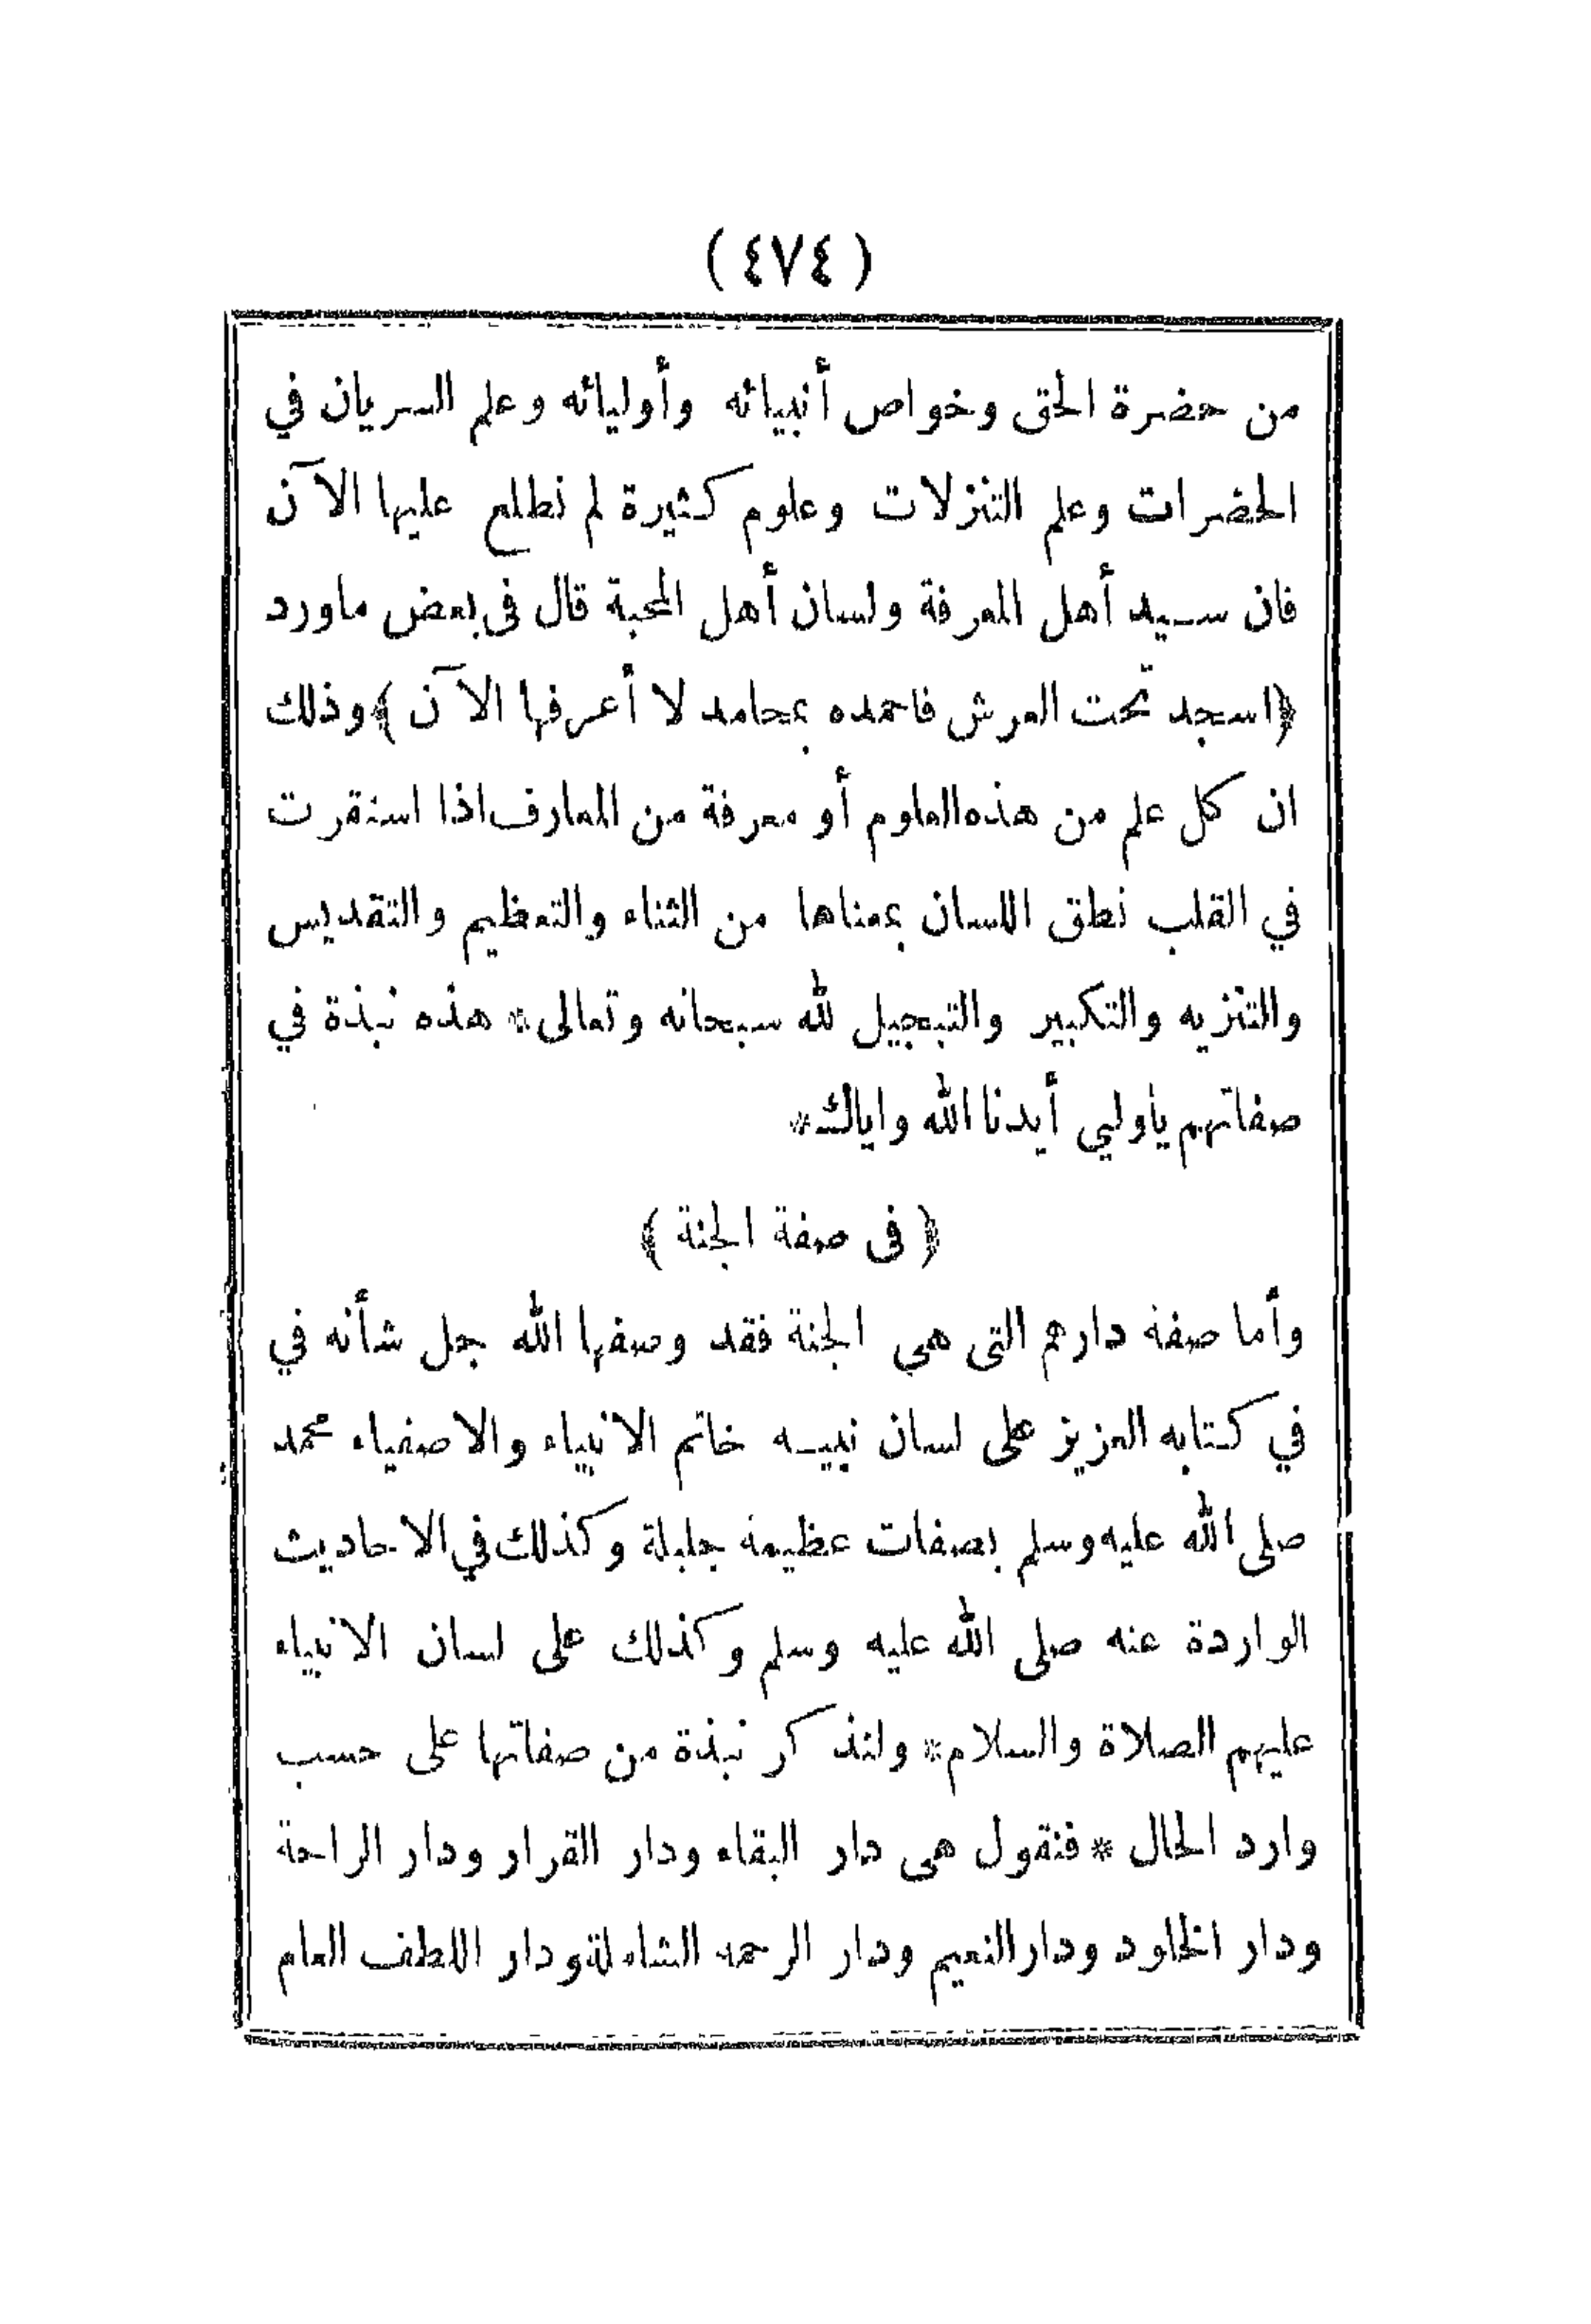 ( ٤٧٤ )
من حضرة الحق وخواص أنبيائه وأوليائه وعلم السريان في
الحضرات وعلم التنزلات وعلوم كثيرة لم نطلع عليها الآن
فان سيد أهل المعرفة ولسان أهل المحبة قال فى بعض ماورد
﴿اسجد تحت العرش فاحمده بمحامد لا أعرفها الآن﴾وذلك
ان كل علم من هذه العلوم أو معرفة من المعارف اذا استقرت
في القلب نطق اللسان بمعناها من الثناء والتعظيم والتقديس
والتنزيه والتكبير والتبجيل لله سبحانه وتعالى* هذه نبذة في
صفاتهم ياولي أيدنا الله واياك*
﴿ فى صفة الجنة ﴾
وأما صفة دارهم التى هي الجنة فقد وصفها الله جل شأنه في
في كتابه العزيز على لسان نبيه خاتم الانبياء والاصفياء محمد
صلى الله عليه وسلم بصفات عظيمة جليلة وكذلك في الاحاديث
الواردة عنه صلى الله عليه وسلم وكذلك على لسان الانبياء
عليهم الصلاة والسلام* ولنذكر نبذة من صفاتها على حسب
وارد الحال * فنقول هى دار البقاء ودار القرار ودار الراحة
ودار الخلود ودار النعيم ودار الرحمة الشاملة ودار اللطف العام